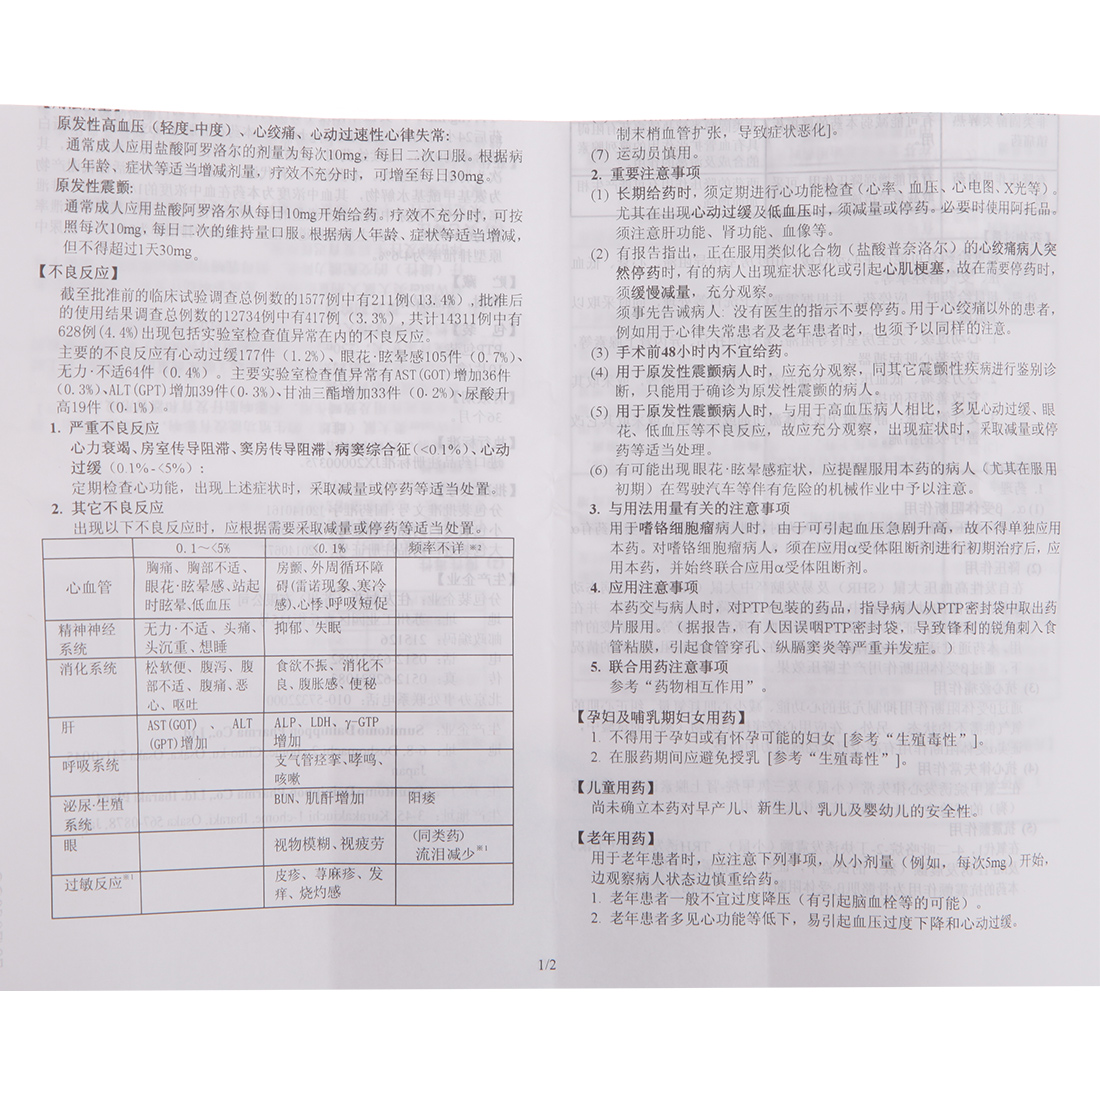 原发性高血压（轻度-中度）、心绞痛、心动过速性心律失常:
通常成人应用盐酸阿罗洛尔的剂量为每次10mg，每日二次口服。根据病
人年龄、症状等适当增减剂量，疗效不充分时，可增至每日30mg。
原发性震颤:
通常成人应用盐酸阿罗洛尔从每日10mg开始给药。疗效不充分时，可按
照每次10mg，每日二次的维持量口服。根据病人年龄、症状等适当增减，
但不得超过1天30mg。
【不良反应】
截至批准前的临床试验调查总例数的1577例中有211例(13.4%)，批准后
的使用结果调查总例数的12734例中有417例（3.3%）,共计14311例中有
628例(4.4%)出现包括实验室检查值异常在内的不良反应。
主要的不良反应有心动过缓177件（1.2%)、眼花·眩晕感105件（0.7%)、
无力·不适64件（0.4%）。主要实验室检查值异常有AST(GOT)增加36件
(0.3%)、ALT(GPT)增加39件(0.3%)、甘油三酯增加33件（0.2%)、尿酸升
高19件（0.1%）。
1. 严重不良反应
心力衰竭、房室传导阻滞、窦房传导阻滞、病窦综合征(<0.1%)、心动
过缓（0.1%-<5%）:
定期检查心功能，出现上述症状时，采取减量或停药等适当处置。
2. 其它不良反应
出现以下不良反应时，应根据需要采取减量或停药等适当处置。
0.1～<5% <0.1% 频率不详※2
心血管 胸痛、胸部不适、眼花·眩晕感、站起时眩晕、低血压 房颤、外周循环障碍(雷诺现象、寒冷感)、心悸、呼吸短促
精神神经系统 无力·不适、头痛、头沉重、想睡 抑郁、失眠
消化系统 松软便、腹泻、腹部不适、腹痛、恶心、呕吐 食欲不振、消化不良、腹胀感、便秘
肝 AST(GOT)、ALT(GPT)增加 ALP、LDH、γ-GTP增加
呼吸系统 支气管痉挛、哮鸣、咳嗽
泌尿·生殖系统 BUN、肌酐增加 阳痿
眼 视物模糊、视疲劳 (同类药)流泪减少※1
过敏反应※1 皮疹、荨麻疹、发痒、烧灼感
制末梢血管扩张，导致症状恶化]。
(7) 运动员慎用。
2. 重要注意事项
(1) 长期给药时，须定期进行心功能检查（心率、血压、心电图、X光等）。
尤其在出现心动过缓及低血压时，须减量或停药。必要时使用阿托品。
须注意肝功能、肾功能、血像等。
(2) 有报告指出，正在服用类似化合物（盐酸普奈洛尔）的心绞痛病人突
然停药时，有的病人出现症状恶化或引起心肌梗塞，故在需要停药时，
须缓慢减量，充分观察。
须事先告诫病人: 没有医生的指示不要停药。用于心绞痛以外的患者，
例如用于心律失常患者及老年患者时，也须予以同样的注意.
(3) 手术前48小时内不宜给药。
(4) 用于原发性震颤病人时，应充分观察，同其它震颤性疾病进行鉴别诊
断，只能用于确诊为原发性震颤的病人。
(5) 用于原发性震颤病人时，与用于高血压病人相比，多见心动过缓、眼
花、低血压等不良反应，故应充分观察，出现症状时，采取减量或停
药等适当处理。
(6) 有可能出现眼花·眩晕感症状，应提醒服用本药的病人（尤其在服用
初期）在驾驶汽车等伴有危险的机械作业中予以注意。
3. 与用法用量有关的注意事项
用于嗜铬细胞瘤病人时，由于可引起血压急剧升高，故不得单独应用
本药。对嗜铬细胞瘤病人，须在应用α受体阻断剂进行初期治疗后，应
用本药，并始终联合应用α受体阻断剂。
4. 应用注意事项
本药交与病人时，对PTP包装的药品，指导病人从PTP密封袋中取出药
片服用。（据报告，有人因误咽PTP密封袋，导致锋利的锐角刺入食
管粘膜，引起食管穿孔、纵膈窦炎等严重并发症。）
5. 联合用药注意事项
参考“药物相互作用”。
【孕妇及哺乳期妇女用药】
1. 不得用于孕妇或有怀孕可能的妇女 [参考“生殖毒性”]。
2. 在服药期间应避免授乳 [参考“生殖毒性”]。
【儿童用药】
尚未确立本药对早产儿、新生儿、乳儿及婴幼儿的安全性。
【老年用药】
用于老年患者时，应注意下列事项，从小剂量（例如，每次5mg）开始，
边观察病人状态边慎重给药。
1. 老年患者一般不宜过度降压（有引起脑血栓等的可能）。
2. 老年患者多见心功能等低下，易引起血压过度下降和心动过缓。
1/2